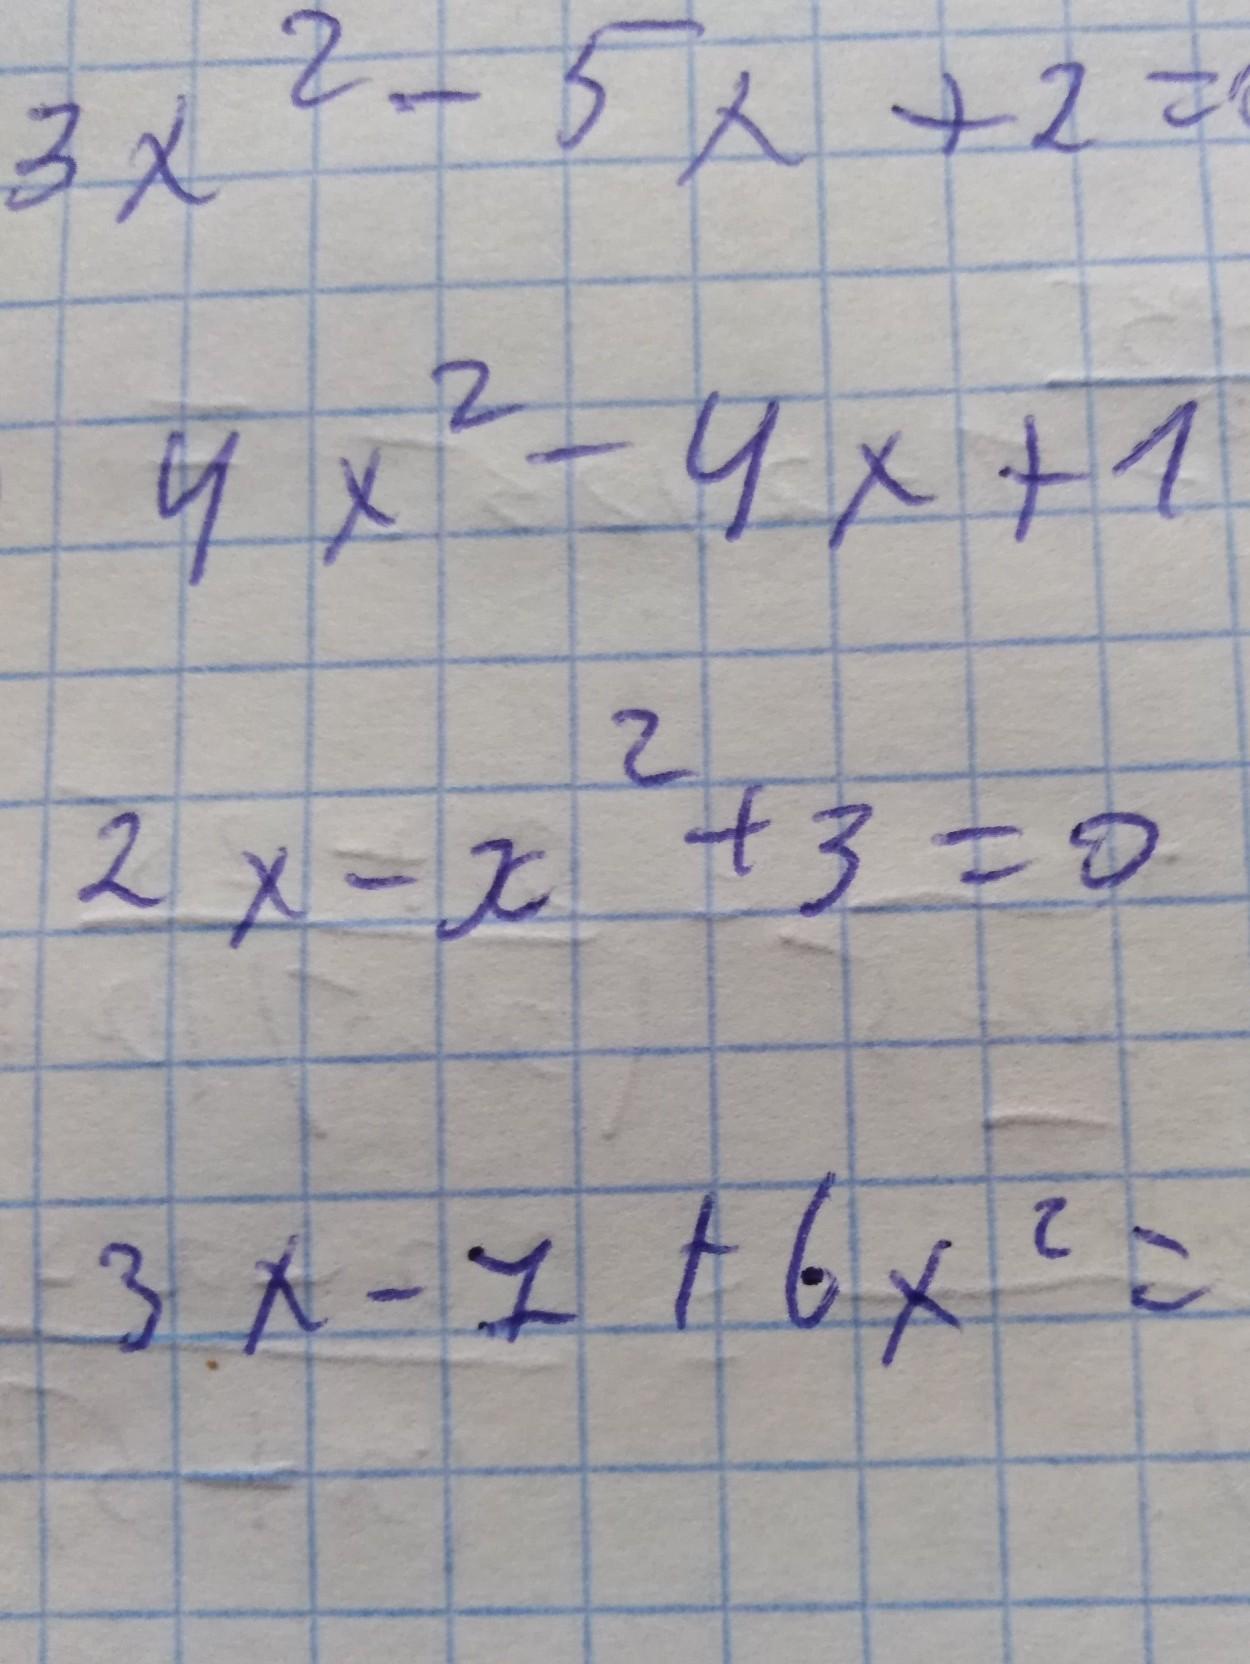 3x² - 5x + 2 = 0
4x² - 4x + 1
2x - x² + 3 = 0
3x - 7 + 6x² =